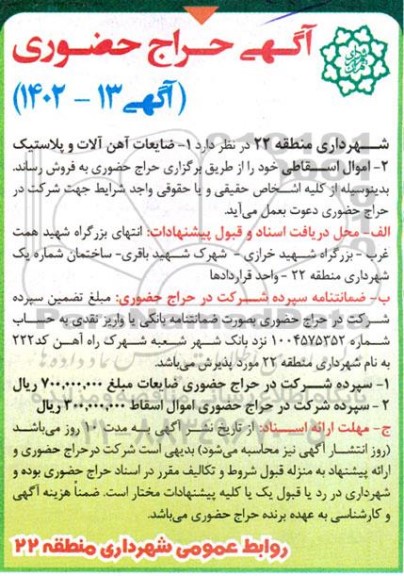 آگهی حراج حضوری
(آگهی ۱۳ - ۱۴۰۲)
شهرداری منطقه ۲۲ در نظر دارد ۱- ضایعات آهن آلات و پلاستیک
۲- اموال اسقاطی خود را از طریق برگزاری حراج حضوری به فروش رساند.
بدینوسیله از کلیه اشخاص حقیقی و یا حقوقی واجد شرایط جهت شرکت در
حراج حضوری دعوت بعمل می‌آید.
الف- محل دریافت اسناد و قبول پیشنهادات: انتهای بزرگراه شهید همت
غرب - بزرگراه شهید خرازی - شهرک شهید باقری- ساختمان شماره یک
شهرداری منطقه ۲۲ - واحد قراردادها
ب- ضمانتنامه سپرده شرکت در حراج حضوری: مبلغ تضمین سپرده
شرکت در حراج حضوری بصورت ضمانتنامه بانکی یا واریز نقدی به حساب
شماره ۱۰۰۴۵۷۵۳۵۲ نزد بانک شهر شعبه شهرک راه آهن کد۲۲۲
به نام شهرداری منطقه ۲۲ مورد پذیرش می‌باشد.
۱- سپرده شرکت در حراج حضوری ضایعات مبلغ ۷۰۰,۰۰۰,۰۰۰ ریال
۲- سپرده شرکت در حراج حضوری اموال اسقاط ۲۰۰,۰۰۰,۰۰۰ ریال
ج- مهلت ارائه اسناد: از تاریخ نشر آگهی به مدت ۱۰ روز می‌باشد
(روز انتشار آگهی نیز محاسبه می‌شود) بدیهی است شرکت درحراج حضوری و
ارائه پیشنهاد به منزله قبول شروط و تکالیف مقرر در اسناد حراج حضوری بوده و
شهرداری در رد یا قبول یک یا کلیه پیشنهادات مختار است. ضمناً هزینه آگهی
و کارشناسی به عهده برنده حراج حضوری می‌باشد.
روابط عمومی شهرداری منطقه ۲۲